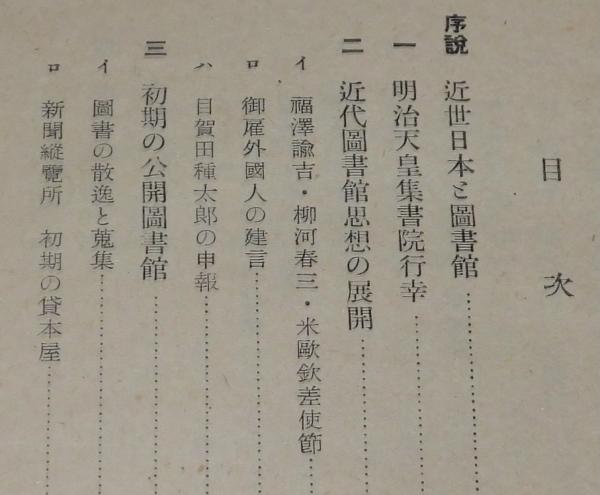 目次
序説 近世日本と圖書館
一 明治天皇集書院行幸
二 近代圖書館思想の展開
イ 福澤諭吉・柳河春三・米歐欽差使節
ロ 御雇外國人の建言
ハ 目賀田種太郎の申報
三 初期の公開圖書館
イ 圖書の散逸と蒐集
ロ 新聞縱覽所 初期の貸本屋